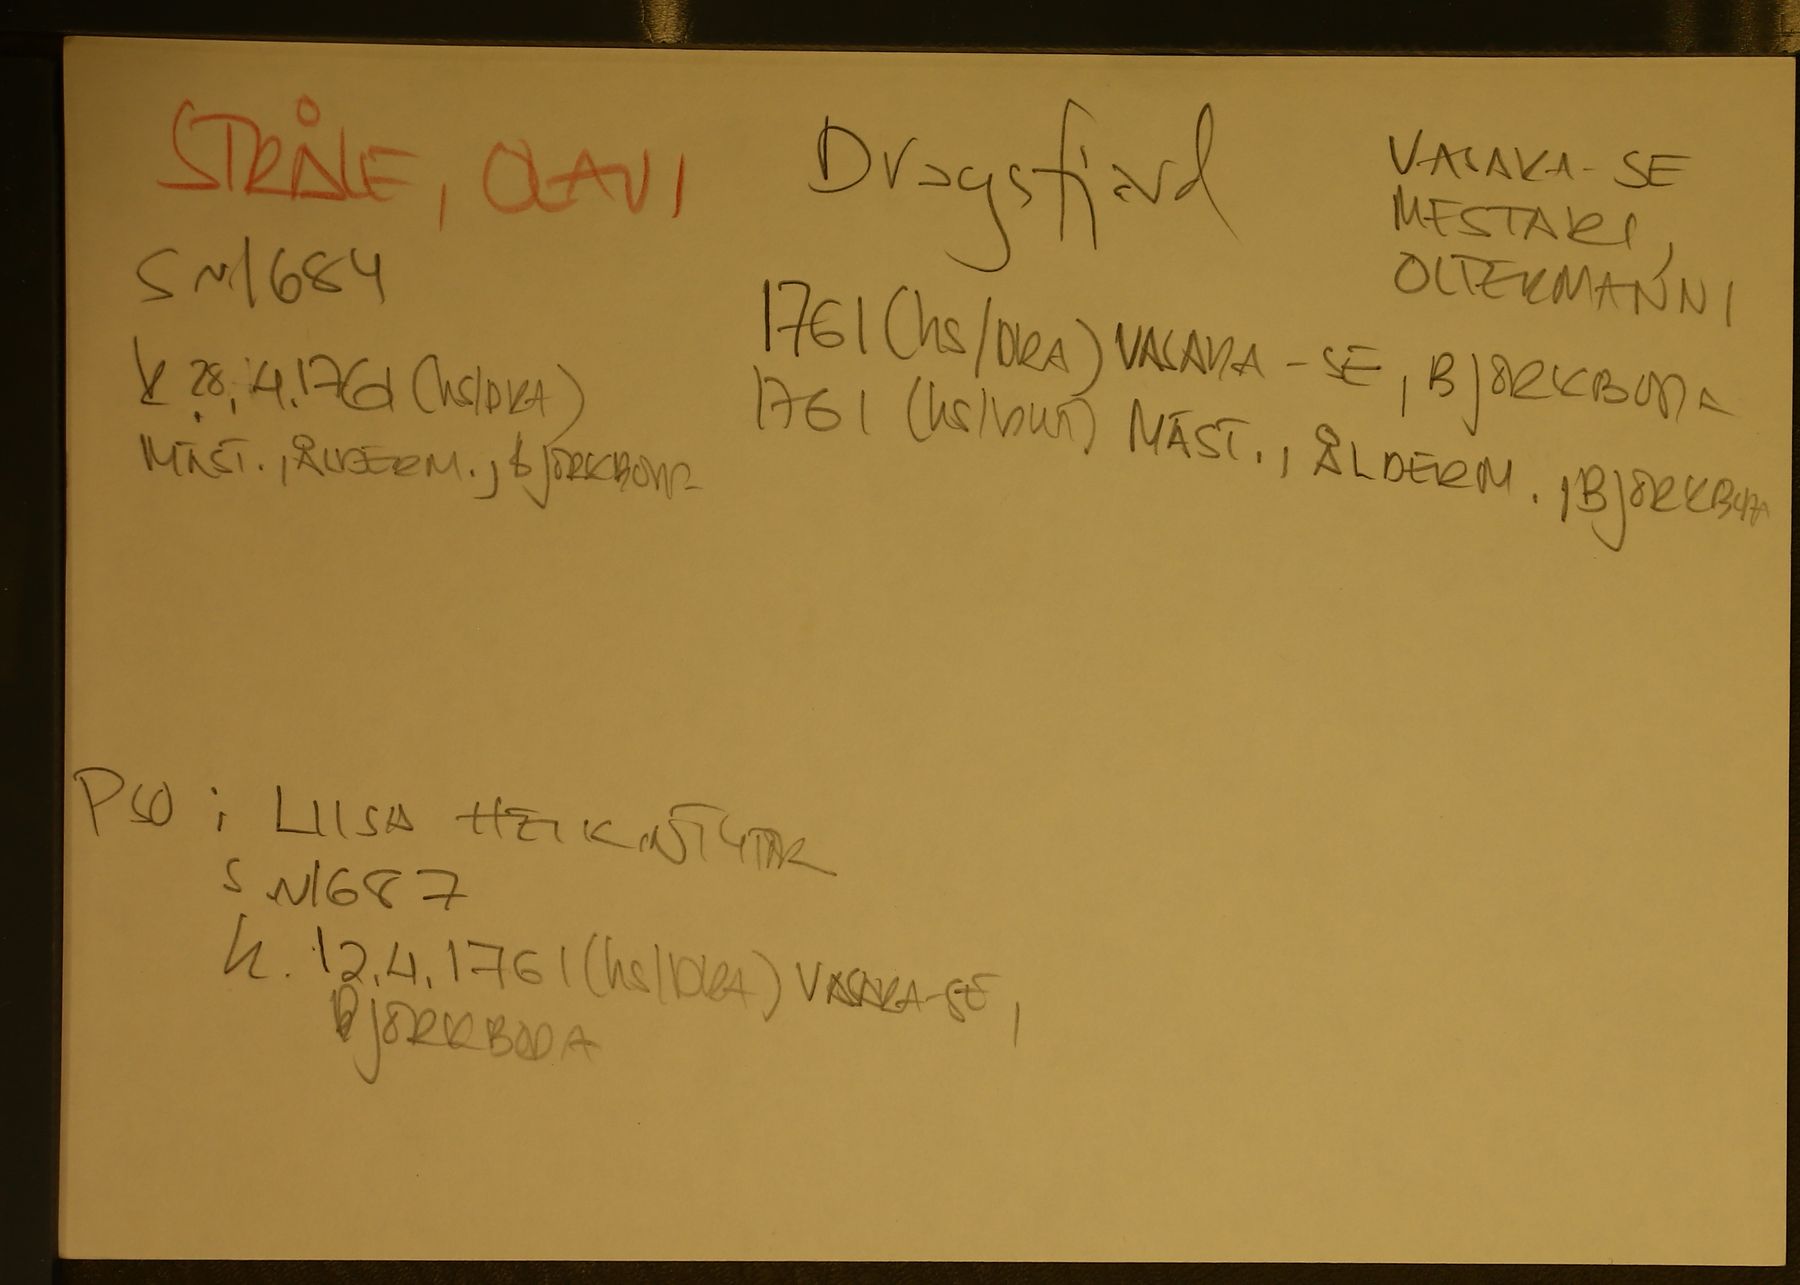 STRÅLE, OLAVI
Dragsfjärd
VASARA-SE
MESTARI,
OLTERMANNI
S N1684
k 28.4.1761 (hs/DRA)
MÄST., ÅLDERM., BJÖRKBODA
1761 (hs/DRA) VASARA-SE, BJÖRKBODA
1761 (hs/DRA) MÄST., ÅLDERM., BJÖRKBODA
PSO: LIISA HEIKINTYTÄR
S N1687
k. 12.4.1761 (hs/DRA) VASARA-SE,
BJÖRKBODA